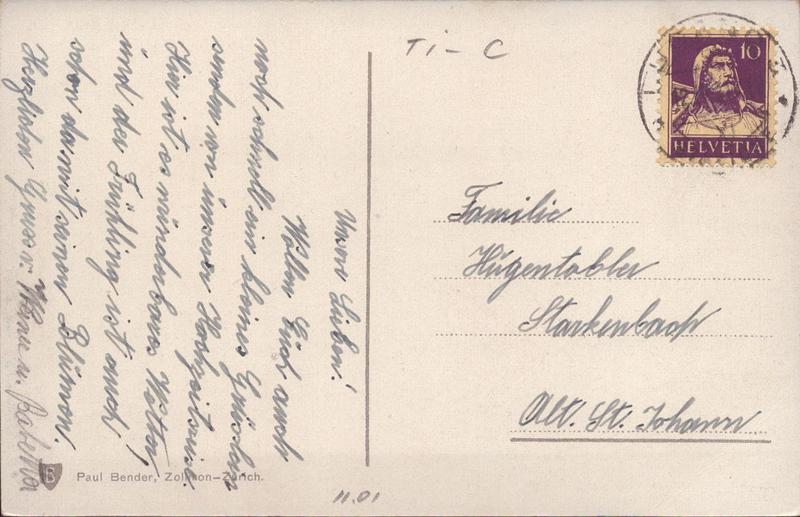 Ti - C
10
HELVETIA
Unsere Lieben!
Wollen Euch auch
noch schnell ein kleines Grüsslein
senden von unserer Hochzeitsreise.
Hier ist es wunderbares Wetter,
und der Frühling ist auch
schon da mit seinen Blumen.
Herzlichen Gruss v.
Familie
Hugentobler
Starkenbach
Alt. St. Johann
B
Paul Bender, Zollikon-Zürich.
11.01